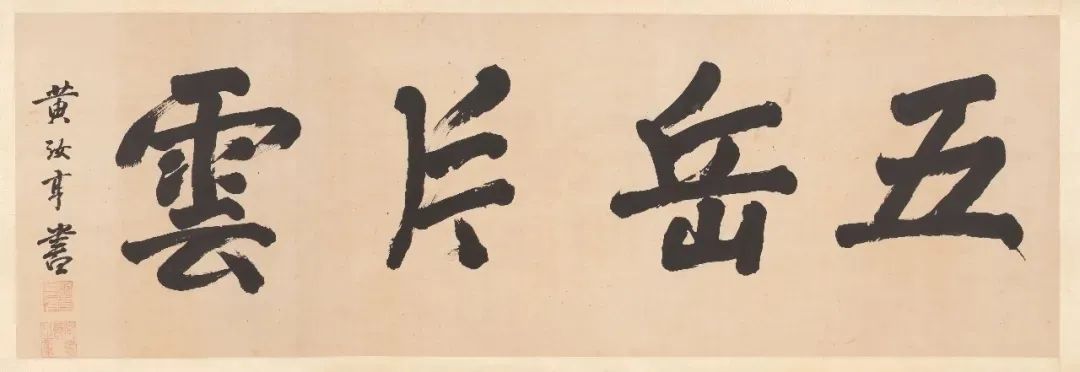 五岳片雲
黄汝亨書